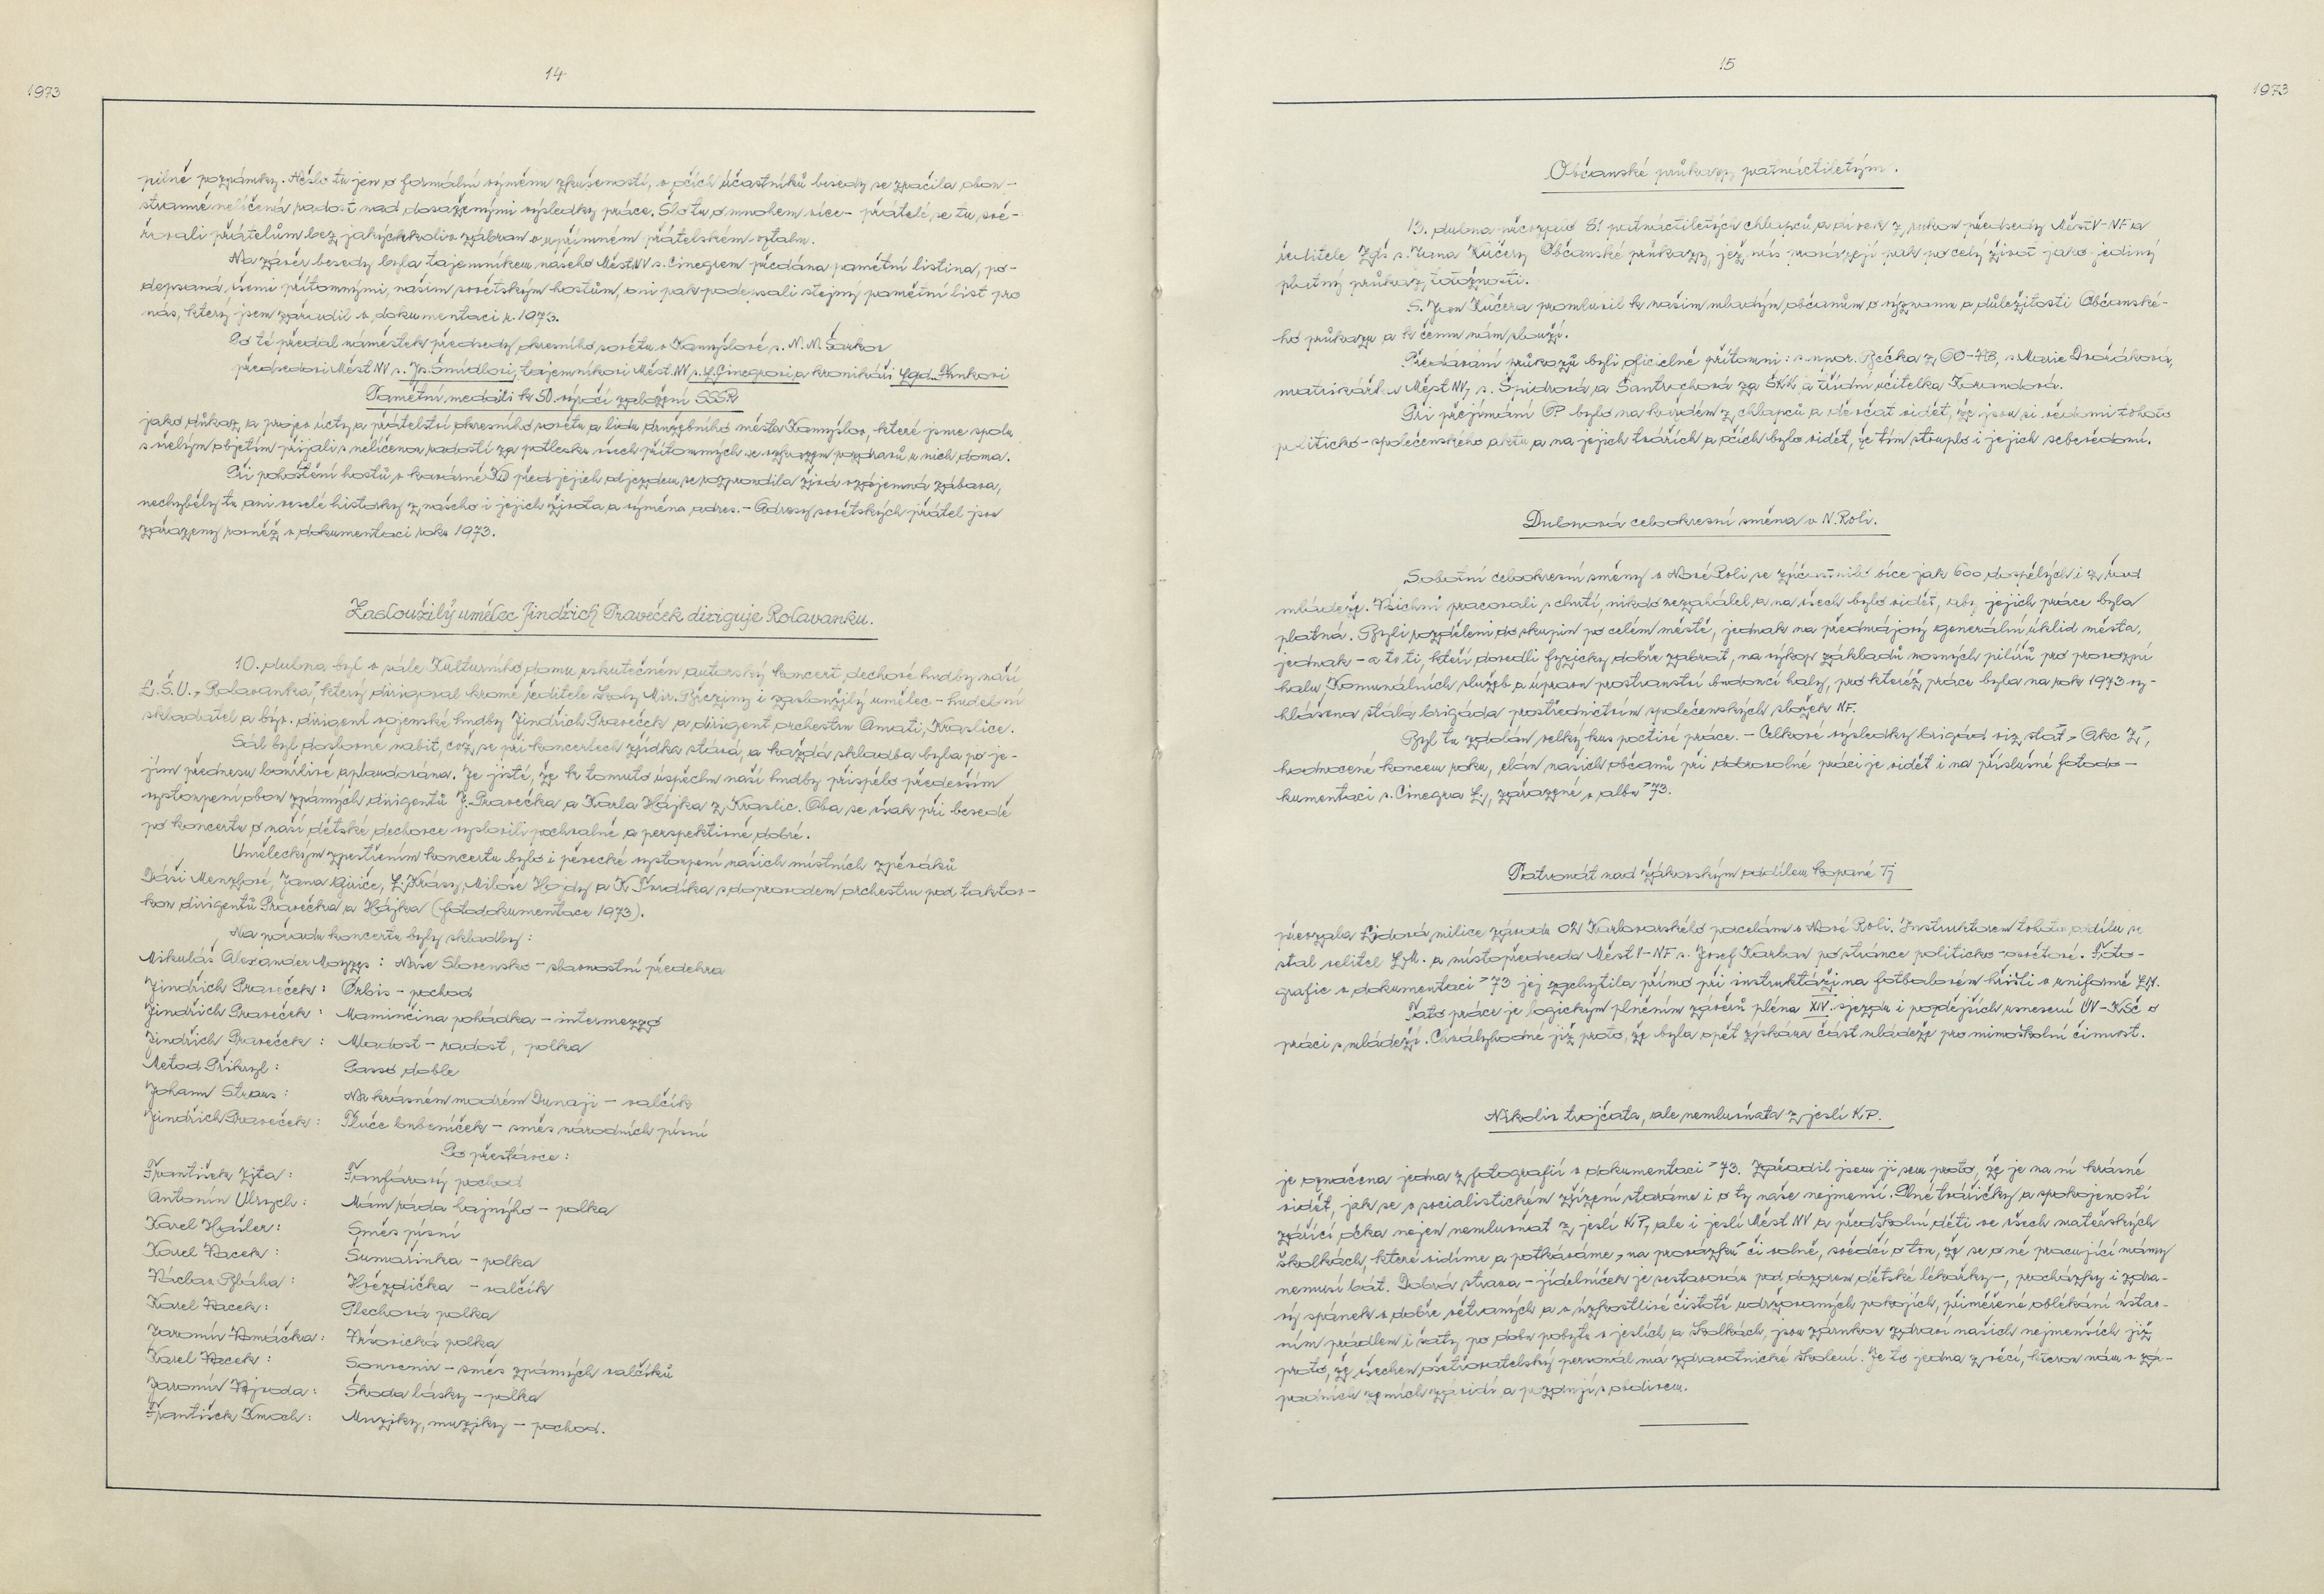 14
1973
pilné poznámky. Nešlo tu jen o formální výměnu zkušeností, v očích účastníků besedy se zračila obou-
stranně nelíčená radost nad dosaženými výsledky práce. Šlo tu o mnohem více - přátelé se tu své-
řovali přátelům bez jakýchkoliv zábran v upřímném přátelském vztahu.
Na závěr besedy byla tajemníkem našeho Měst.NV s. Cinegrem předána pamětní listina, po-
depsaná všemi přítomnými, našim sovětským hostům, oni pak podepsali stejný pamětní list pro
nás, který jsem zařadil v dokumentaci r. 1973.
Po té předal náměstek předsedy okresního sovětu v Kamyšlově s. N. N. Šarkov
předsedovi Měst NV s. Jos. Šmídlovi, tajemníkovi Měst. NV s. L. Cinegrovi a kronikáři Lad.
Pamětní medaili k 50. výročí založení SSSR
jako důkaz a projev úcty a přátelství okresního sovětu a lidu družebního města Kamyšlov, které jsme spolu
s vřelým objetím přijali s nelíčenou radostí za potlesku všech přítomných se vzkazem pozdravů u nich doma.
Při pohoštění hostů v kavárně KD před jejich odjezdem se rozproudila živá vzájemná zábava,
nechyběly tu ani veselé historky z našeho i jejich života a výměna adres. - Adresy sovětských přátel jsou
zařazeny rovněž v dokumentaci roku 1973.
Zasloužilý umělec Jindřich Praveček diriguje Rolavanku.
10. dubna byl v sále Kulturního domu uskutečněn autorský koncert dechové hudby naší
L.Š.U. „Rolavanka", který dirigoval kromě ředitele školy Mir. Březiny i zasloužilý umělec - hudební
skladatel a býv. dirigent vojenské hudby Jindřich Praveček a dirigent orchestru Amati, Kraslice.
Sál byl doslovně nabit, což se při koncertech zřídka stává, a každá skladba byla po je-
jím přednesu bouřlivě aplaudována. Je jisté, že k tomuto úspěchu naší hudby přispělo především
vystoupení obou známých dirigentů J. Pravečka a Karla Hájka z Kraslic. Oba se však při besedě
po koncertu o naší dětské dechovce vyslovili pochvalně a perspektivně dobré.
Uměleckým zpestřením koncertu bylo i pěvecké vystoupení našich místních zpěváků
Dáši Menzlové, Jana L. Krásy, Miloše Hojdy a K. Tvrdíka s doprovodem orchestru pod taktov-
kou dirigentů Pravečka a Hájka (fotodokumentace 1973).
Na pořadu koncertu byly skladby:
Mikuláš Alexander Moyzes: Naše Slovensko - slavnostní předehra
Jindřich Praveček: Orbis - pochod
Jindřich Praveček: Maminčina pohádka - intermezzo
Jindřich Praveček: Mladost - radost, polka
Metod Přikryl: Passo doble
Johann Straus: Na krásném modrém Dunaji - valčík
Jindřich Praveček: Tluče bubeníček - směs národních písní
Po přestávce:
František Zita: Fanfárový pochod
Antonín Ulrych: Mám ráda hajnýho - polka
Karel Hašler: Směs písní
Karel Vacek: Šumařinka - polka
Václav Bláha: Hvězdička - valčík
Karel Vacek: Plechová polka
Jaromír Vomáčka: Vršovická polka
Karel Vacek: Souvenir - směs známých valčíků
Jaromír Vejvoda: Škoda lásky - polka
František Kmoch: Muziky, muziky - pochod.
15
1973
Občanské průkazy patnáctiletým.
13. dubna převzalo 81 patnáctiletých chlapců a dívek z rukou předsedy MěstV-NF a
ředitele Zdš s. Jana Kučery Občanské průkazy, jež nás provázejí pak po celý život jako jediný
platný průkaz totožnosti.
S. Jan Kučera promluvil k našim mladým občanům o významu a důležitosti Občanské-
ho průkazu a k čemu nám slouží.
Předávání průkazů byli oficielně přítomni: s. npor. Bečka z OO-VB, s. Marie Dvořáková,
matrikářka Měst NV, s. Špidrová a Šantrochová za SKK a třídní učitelka Korandová.
Při přejímání OP bylo na každém z chlapců a děvčat vidět, že jsou si vědomi tohoto
politicko-společenského aktu a na jejich tvářích a očích bylo vidět, že tím stouplo i jejich sebevědomí.
Dubnová celookresní směna v N. Roli.
Sobotní celookresní směny v Nové Roli se zúčastnilo více jak 600 dospělých i z řad
mládeže. Všichni pracovali s chutí, nikdo nezahálel a na všech bylo vidět, aby jejich práce byla
platná. Byli rozděleni do skupin po celém městě, jednak na předmájový generální úklid města,
jednak - a to ti, kteří dovedli fyzicky dobře zabrat, na výkop základů nosných pilířů pro provozní
halu Komunálních služeb a úpravu prostranství budoucí haly, pro kteréž práce byla na rok 1973 vy-
hlášena stálá brigáda prostřednictvím společenských složek NF.
Byl tu zdolán velký kus poctivé práce. - Celkové výsledky brigád viz stať „Akce Z",
hodnocené koncem roku, elán našich občanů při dobrovolné práci je vidět i na příslušné fotodo-
kumentaci s. Cinegra L., zařazené v albu "73.
Patronát nad žákovským oddílem kopané Tj
převzala Lidová milice závodu 02 Karlovarského porcelánu v Nové Roli. Instruktorem tohoto oddílu se
stal velitel L.M. a místopředseda Měst V-NF s. Josef Karban po stránce politicko-osvětové. Foto-
grafie v dokumentaci "73 jej zachytila přímo při instruktáži na fotbalovém hřišti v uniformě LM.
Tato práce je logickým plněním závěrů pléna XIV. sjezdu i pozdějších usnesení ÚV-KSČ o
práci s mládeží. Chvályhodné již proto, že byla opět získána část mládeže pro mimoškolní činnost.
Nikoliv trojčata, ale nemluvňata z jeslí KP.
je označena jedna z fotografií v dokumentaci "73. Zařadil jsem ji sem proto, že je na ní krásně
vidět, jak se v socialistickém zřízení staráme i o ty naše nejmenší. Plné tvářičky a spokojeností
zářící očka nejen nemluvňat z jeslí KP, ale i jeslí Měst NV a předškolní děti ve všech mateřských
školkách, které vidíme a potkáváme „na provázku" či volně, svědčí o tom, že se o ně pracující mámy
nemusí bát. Dobrá strava - jídelníček je sestavován pod dozorem dětské lékařky -, procházky i zdra-
vý spánek v dobře větraných a v úzkostlivé čistotě udržovaných pokojích, přiměřené oblékání ústav-
ním prádlem i šaty po dobu pobytu v jeslích a školkách, jsou zárukou zdraví našich nejmenších již
proto, že všechen ošetřovatelský personál má zdravotnické školení. Je to jedna z věcí, kterou nám v zá-
padních zemích závidí a poznají s obdivem.